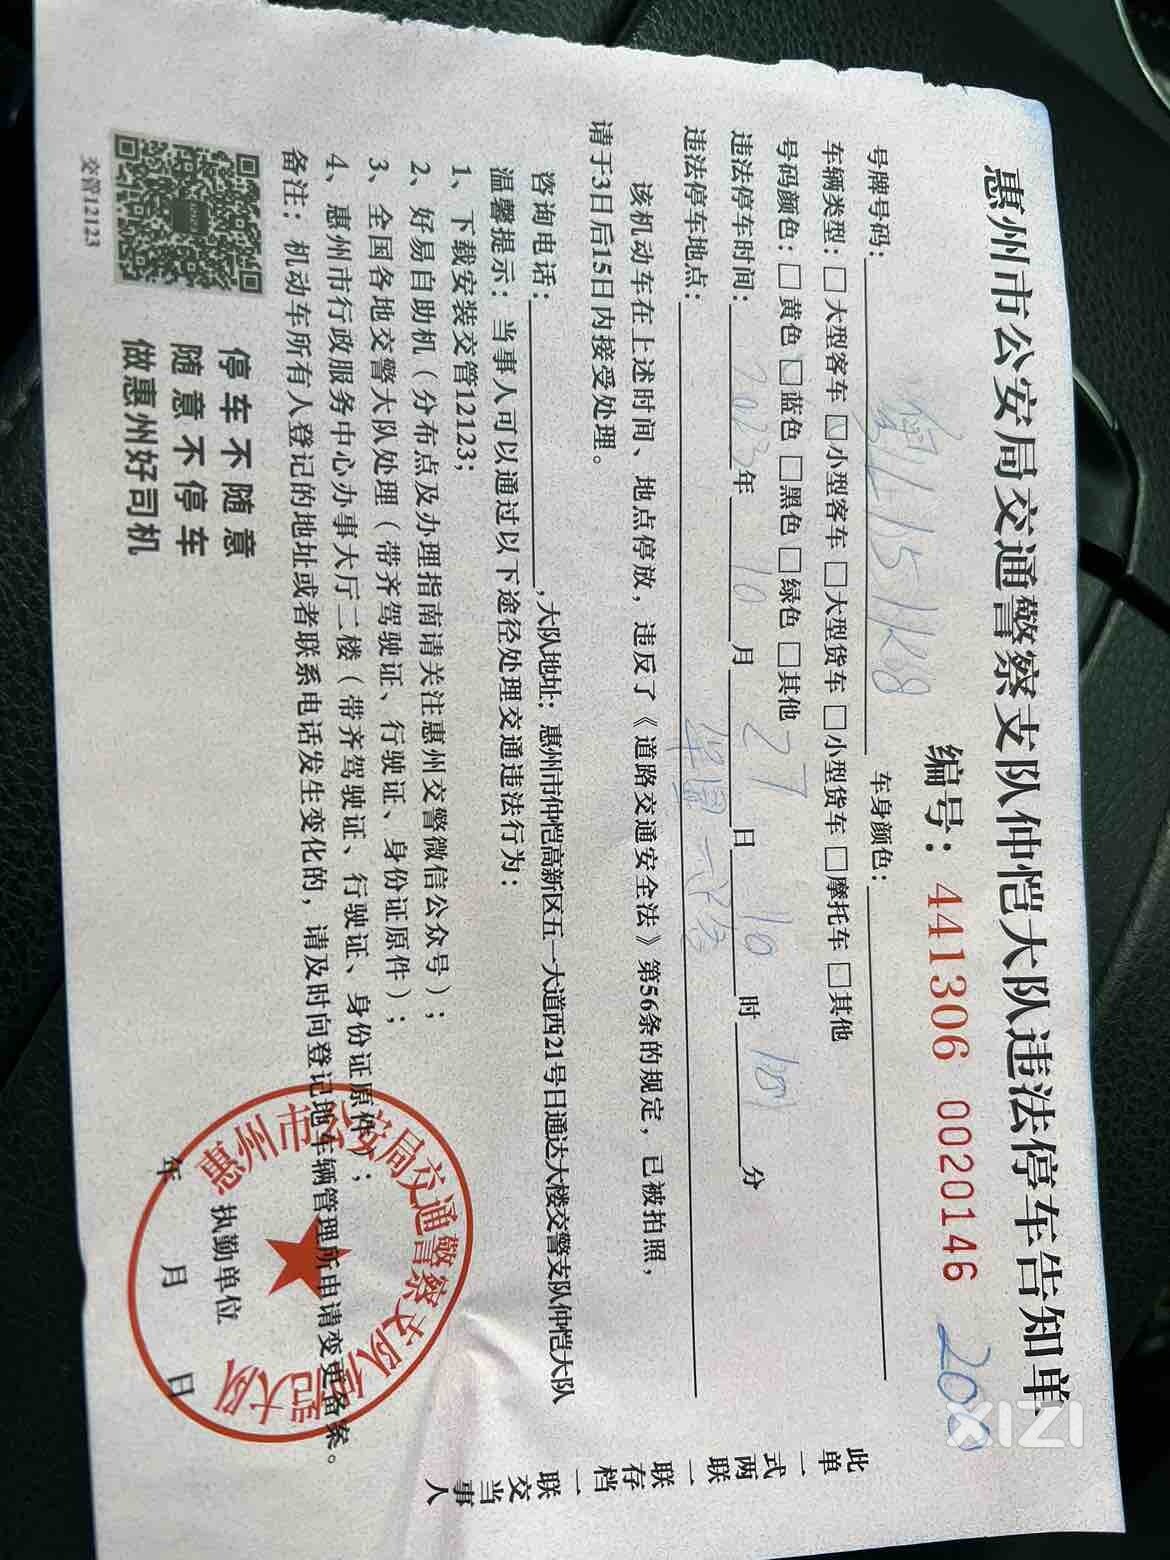 惠州市公安局交通警察支队仲恺大队违法停车告知单
编号：441306 0020146 200
号牌号码： 车身颜色：
车辆类型：□大型客车 □小型客车 □大型货车 □小型货车 □摩托车 □其他
号码颜色：□黄色 □蓝色 □黑色 □绿色 □其他
违法停车时间：2023年10月27日10时18分
违法停车地点：
该机动车在上述时间、地点停放，违反了《道路交通安全法》第56条的规定，已被拍照，
请于3日后15日内接受处理。
咨询电话： ,大队地址：惠州市仲恺高新区五一大道西21号日通达大楼交警支队仲恺大队
温馨提示：当事人可以通过以下途径处理交通违法行为：
1、下载安装交管12123；
2、好易自助机（分布点及办理指南请关注惠州交警微信公众号）；
3、全国各地交警大队处理（带齐驾驶证、行驶证、身份证原件）；
4、惠州市行政服务中心办事大厅二楼（带齐驾驶证、行驶证、身份证原件）；
备注：机动车所有人登记的地址或者联系电话发生变化的，请及时向登记地车辆管理所申请变更备案。
停车不随意
随意不停车
做惠州好司机
交管12123
执勤单位
年 月 日
惠州市公安局交通警察支队仲恺大队
此单一式两联一联存档一联交当事人
XIZI